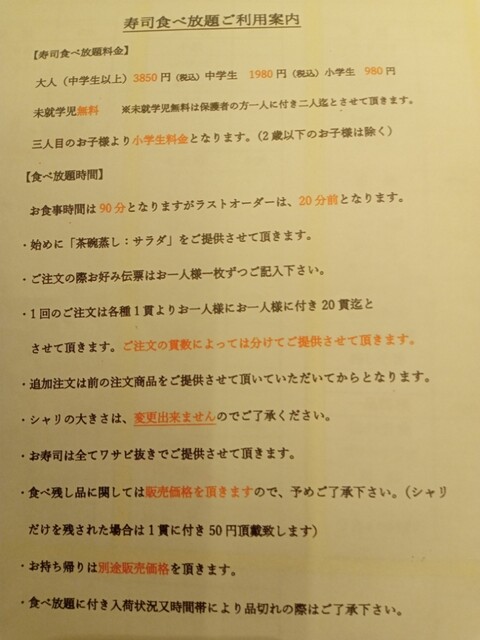 寿司食べ放題ご利用案内
【寿司食べ放題料金】
大人（中学生以上）3850円（税込）中学生　1980円（税込）小学生　980円
未就学児無料　※未就学児無料は保護者の方一人に付き二人迄とさせて頂きます。
三人目のお子様より小学生料金となります。（2歳以下のお子様は除く）
【食べ放題時間】
お食事時間は90分となりますがラストオーダーは、20分前となります。
・始めに「茶碗蒸し：サラダ」をご提供させて頂きます。
・ご注文の際お好み伝票はお一人様一枚ずつご記入下さい。
・1回のご注文は各種1貫よりお一人様にお一人様に付き20貫迄と
させて頂きます。ご注文の貫数によっては分けてご提供させて頂きます。
・追加注文は前の注文商品をご提供させて頂いていただいてからとなります。
・シャリの大きさは、変更出来ませんのでご了承ください。
・お寿司は全てワサビ抜きでご提供させて頂きます。
・食べ残し品に関しては販売価格を頂きますので、予めご了承下さい。（シャリ
だけを残された場合は1貫に付き50円頂戴致します）
・お持ち帰りは別途販売価格を頂きます。
・食べ放題に付き入荷状況又時間帯により品切れの際はご了承下さい。